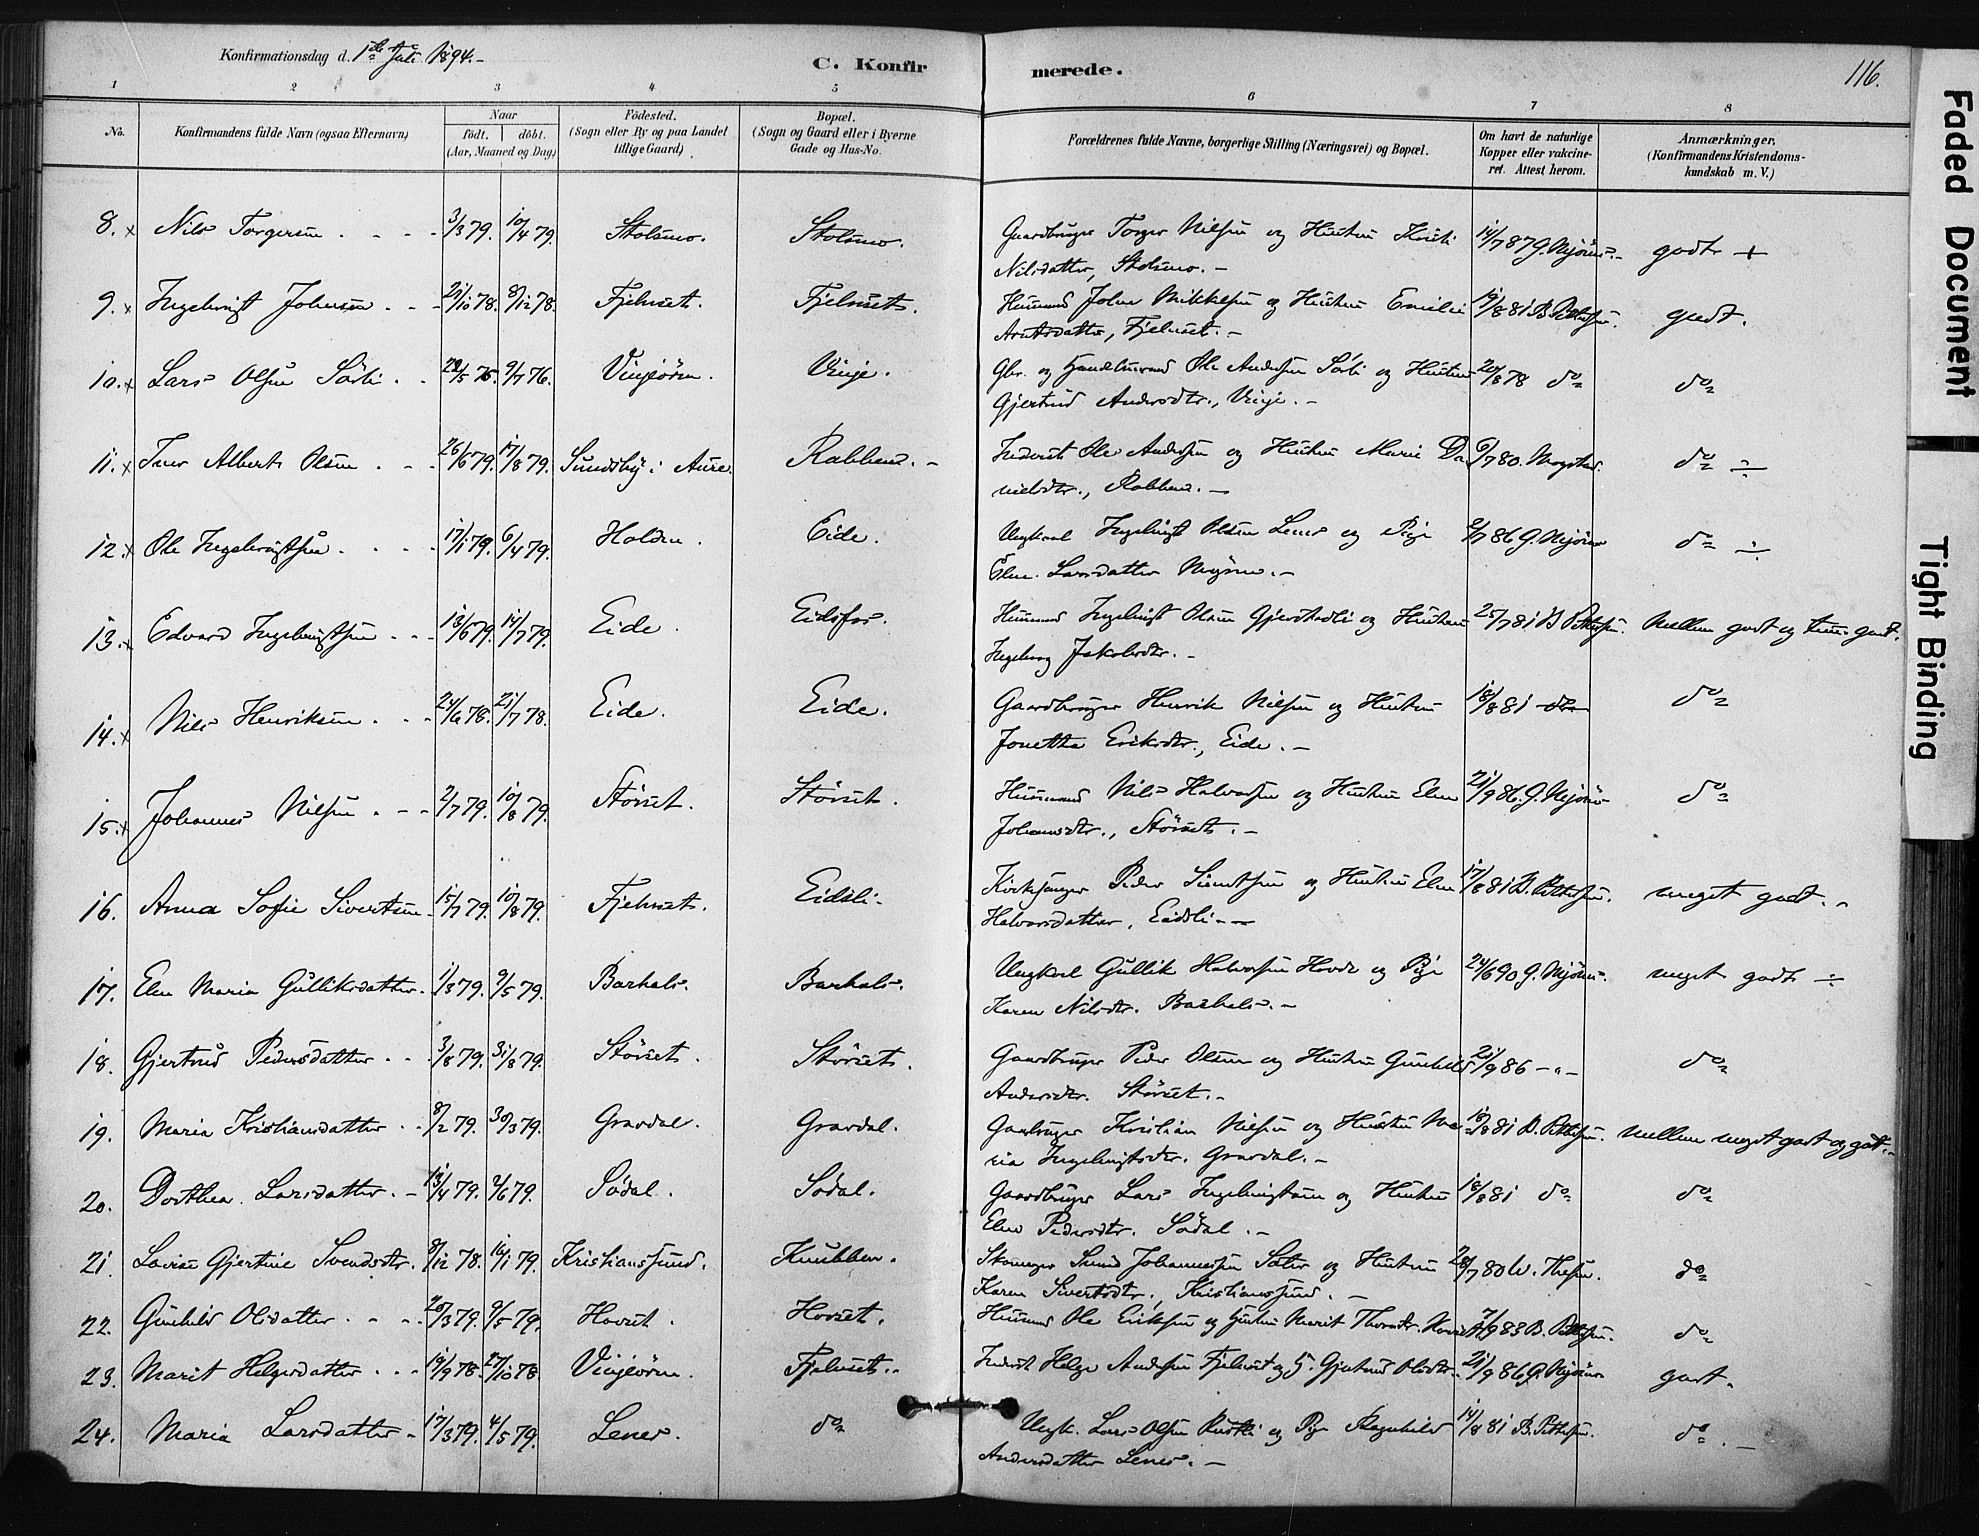 Konfirmationsdag d. 1ste Juli 1894.-
C. Konfirmerede.
116.
1 2 3 4 5 6 7 8
No.
Konfirmandens fulde Navn (ogsaa Efternavn)
Naar
födt. | döbt.
(Aar, Maaned og Dag)
Födested.
(Sogn eller By og paa Landet
tillige Gaard)
Bopæl.
(Sogn og Gaard eller i Byerne
Gade og Hus-No.
Forældrenes fulde Navne, borgerlige Stilling (Næringsvei) og Bopæl.
Om havt de naturlige
Kopper eller vakcine-
ret. Attest herom.
Anmærkninger.
(Konfirmandens Kristendoms-
kundskab m. V.)
8. x Nils Torgersen . - - - 3/3 79. 10/4 79. Stolsmo. Stolsmo. Gaardbruger Torger Nilsen og Hustru Kirsti 14/7 87 G. Mjönes.- godt +
Nilsdatter, Stolsmo. -
9. x Ingebrigt Johnsen . - - 21/10 78. 8/12 78. Fjelnset. Fjelnset. Husmand John Mikkelsen og Hustru Emilie 19/8 81 B. Pettersen. godt.
Arntsdatter, Fjelnset. -
10. x Lars Olsen Sörli . - 22/5 75. 9/7 76. Vinjeören. Vinje. Gbr. og Handelsmand Ole Andersen Sörli og Hustru 20/8 78 do do
Gjertrud Andersdtr., Vinje. -
11. x Iver Albert Olsen . - - 26/6 79. 17/8 79. Sundsby i Aure. Rabben. - Inderst Ole Andersen og Hustru Marie Da 6/7 80. do ÷
nielsdtr., Rabben. -
12. x Ole Ingebrigtsen . - - - 17/1 79. 6/4 79. Holden. Eide. Ungkarl Ingebrigt Olsen Lenes og Pige 2/7 86 G. Mjönes do ÷
Elen Larsdatter. -
13. x Edvard Ingebrigtsen . - - 13/6 79. 14/7 79. Eide. Eidsfos. Husmand Ingebrigt Olsen og Hustru 25/7 81 B. Pettersen. Mellem godt og temm. godt.
Ingeborg Jakobsdtr. -
14. x Nils Henriksen . - - 24/6 78. 21/7 78. Eide. Eide. Gaardbruger Henrik Nilsen og Hustru 18/8 81 do do
Jonetta Eriksdtr., Eide. -
15. x Johannes Nilsen . - - 2/7 79. 10/8 79. Störset. Störset. Husmand Nils Halvorsen og Hustru Elen 21/9 86. G. Mjönes do
Johansdtr., Störset. -
16. Anna Sofie Sivertsen - 15/7 79. 10/8 79. Fjelnset. Eidsli. Kirkesanger Peder Sivertsen og Hustru Elen 17/8 81 B. Pettersen. meget godt. -
Halvorsdatter, Eidsli. -
17. Elen Maria Gulliksdatter. 1/3 79. 9/5 79. Barhals. Barhals. Ungkarl Gullik Halvorsen Hovde og Pige 24/6 90 G. Mjönes. meget godt ÷
Karen Nilsdtr. Barhals. -
18. Gjertrud Pedersdatter . - 3/8 79. 31/8 79. Störset. Störset. Gaardbruger Peder Olsen og Hustru Gunhild 21/9 86 - " - do
Andersdtr. Störset. -
19. Maria Kristiansdatter - - 8/2 79. 30/3 79. Gravdal. Gravdal. Gaardbruger Kristian Nilsen og Hustru Ma- 18/8 81 B. Pettersen. mellem meget godt og godt. -
ria Ingebrigtsdtr. Gravdal. -
20. Dorthea Larsdatter. - 13/4 79. 2/6 79. Södal. Södal. Gaardbruger Lars Ingebrigtsen og Hustru 18/8 81 do do
Elen Pedersdtr. Södal. -
21. Lovise Gjertine Svendsdtr. 8/12 78. 16/1 79. Kristianssund. Knubben. Skomager Svend Johannessen Sæter og Hustru 28/7 80 W. Thesen. do
Karen Sivertsdtr. Kristianssund. -
22. Gunhild Olsdatter . - - 20/3 79. 9/5 79. Hovset. Hovset. Husmand Ole Eriksen og Hustru Marit Thoresdtr. Hovset 7/9 83 B. Pettersen. do
23. Marit Helgesdatter . - - 14/9 78. 27/10 78. Vinjeören. Fjelnset. Inderst Helge Andersen Fjelnset og H. Gjertrud Olsdtr. 21/9 86 G. Mjönes godt.
24. Maria Larsdatter - 17/3 79. 4/5 79. Lenes. do Ungk. Lars Olsen og Pige Ragnhild 14/8 81 B. Pettersen. do. -
Andersdatter Lenes. -
Faded Document
Tight Binding